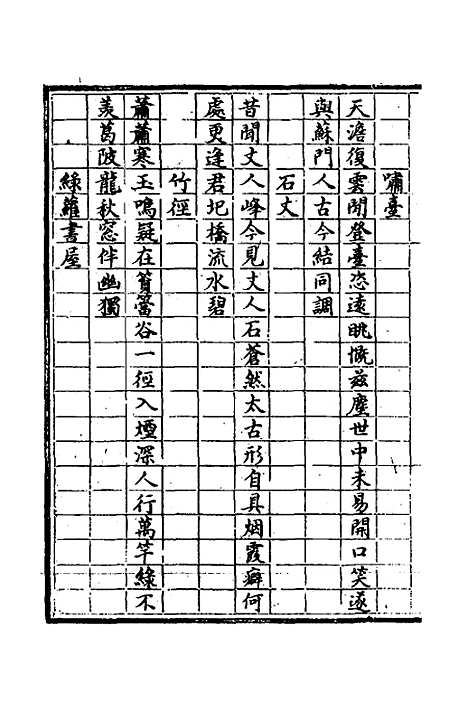 嘯臺
天澹復雲閒登臺恣遠眺慨茲塵世中未易開口笑遂
與蘇門人古今結同調
石丈
昔聞丈人峰今見丈人石蒼然太古形自具烟霞癖何
處更逢君圯橋流水碧
竹徑
蕭蕭寒玉鳴疑在篔簹谷一徑入煙深人行萬竿綠不
羡葛陂龍秋窓伴幽獨
綠蘿書屋